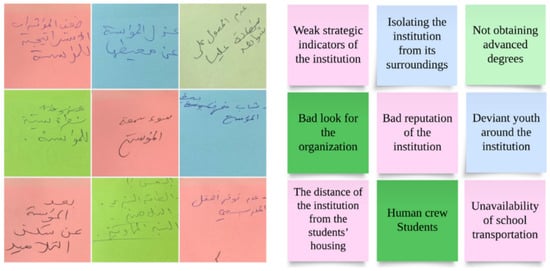 ضعف المؤشرات
الاستراتيجية
للمؤسسة
عزل المؤسسة
عن محيطها
عدم الحصول على
شواهد
عليا
نظرة سيئة
للمؤسسة
سوء سمعة
المؤسسة
شباب منحرف
بعد
المؤسسة
عن سكن
التلاميذ
عدم توفر النقل
المدرسي
Weak strategic
indicators of
the institution
Isolating the
institution
from its
surroundings
Not obtaining
advanced
degrees
Bad look for
the
organization
Bad reputation
of the
institution
Deviant youth
around the
institution
The distance of
the institution
from the
students'
housing
Human crew
Students
Unavailability
of school
transportation